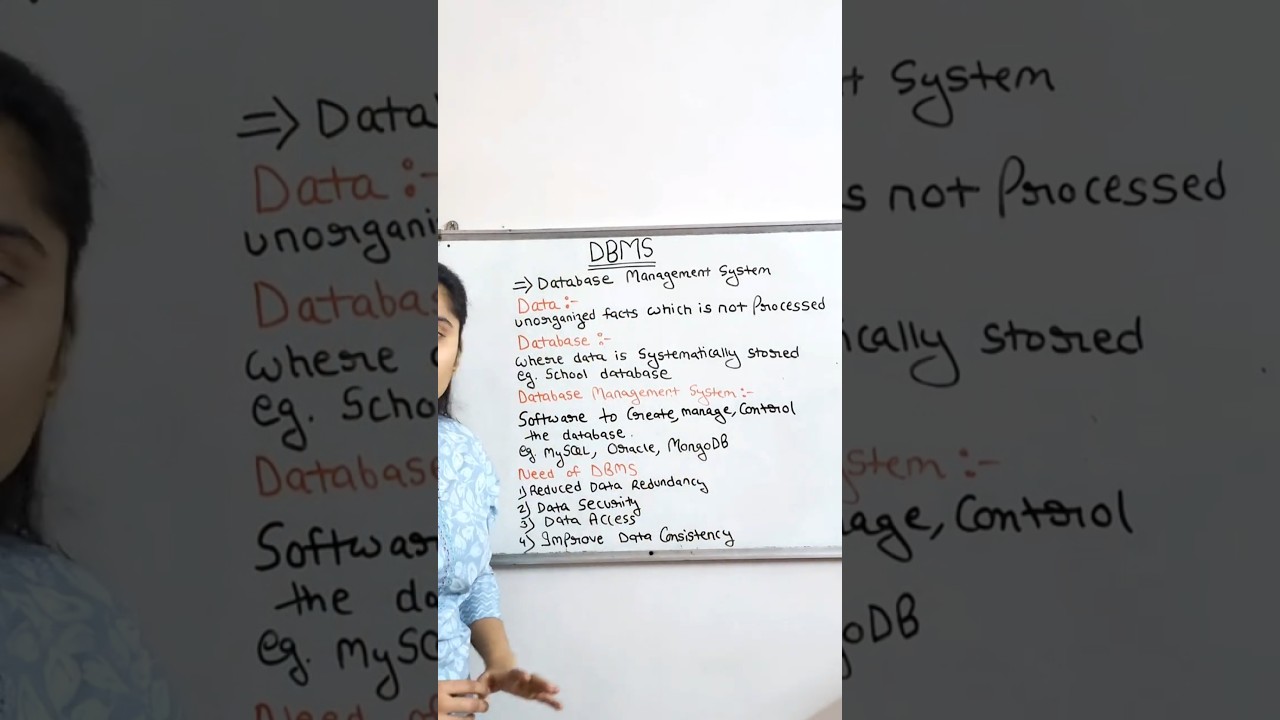 DBMS
=> Database Management System
Data :-
unorganized facts which is not Processed
Database :-
where data is Systematically stored
eg. School database
Database Management System :-
Software to Create, manage, Control
the database.
eg MySQL, Oracle, MongoDB
Need of DBMS
1) Reduced Data Redundancy
2) Data Security
3) Data Access
4) Improve Data Consistency